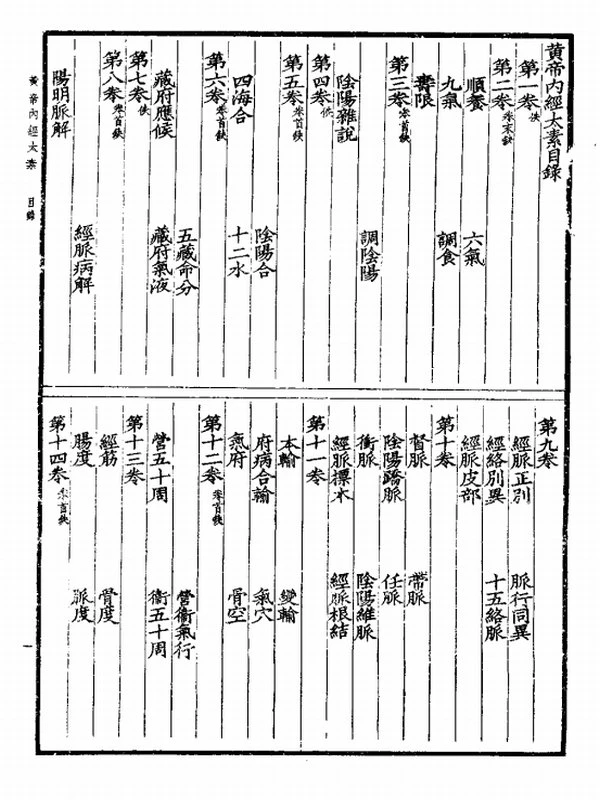 黃帝內經太素目錄
第一卷 佚
第二卷 卷末缺
順養 六氣
九氣 調食
壽限
第三卷 卷首缺
調陰陽
陰陽雜說
第四卷 佚
第五卷 卷首缺
陰陽合
四海合 十二水
第六卷 卷首缺
五藏命分
藏府應候 藏府氣液
第七卷 佚
第八卷 卷首缺
經脈病解
陽明脈解
第九卷
經脈正別 脈行同異
經絡別異 十五絡脈
經脈皮部
第十卷
督脈 帶脈
陰陽蹻脈 任脈
衝脈 陰陽維脈
經脈標本 經脈根結
第十一卷
本輸 變輸
府病合輸 氣穴
氣府 骨空
第十二卷 卷首缺
營衛氣行
營五十周 衛五十周
第十三卷
經筋 骨度
腸度 脈度
第十四卷 卷首缺
黃帝內經太素 目錄 一